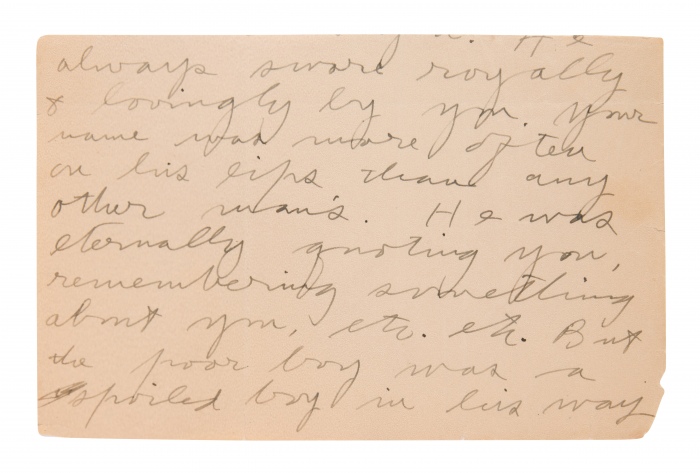 He
always swore royally
& lovingly by you. Your
name was more often
on his lips than any
other man's. He was
eternally quoting you,
remembering something
about you, etc. etc. But
the poor boy was a
spoiled boy in his way